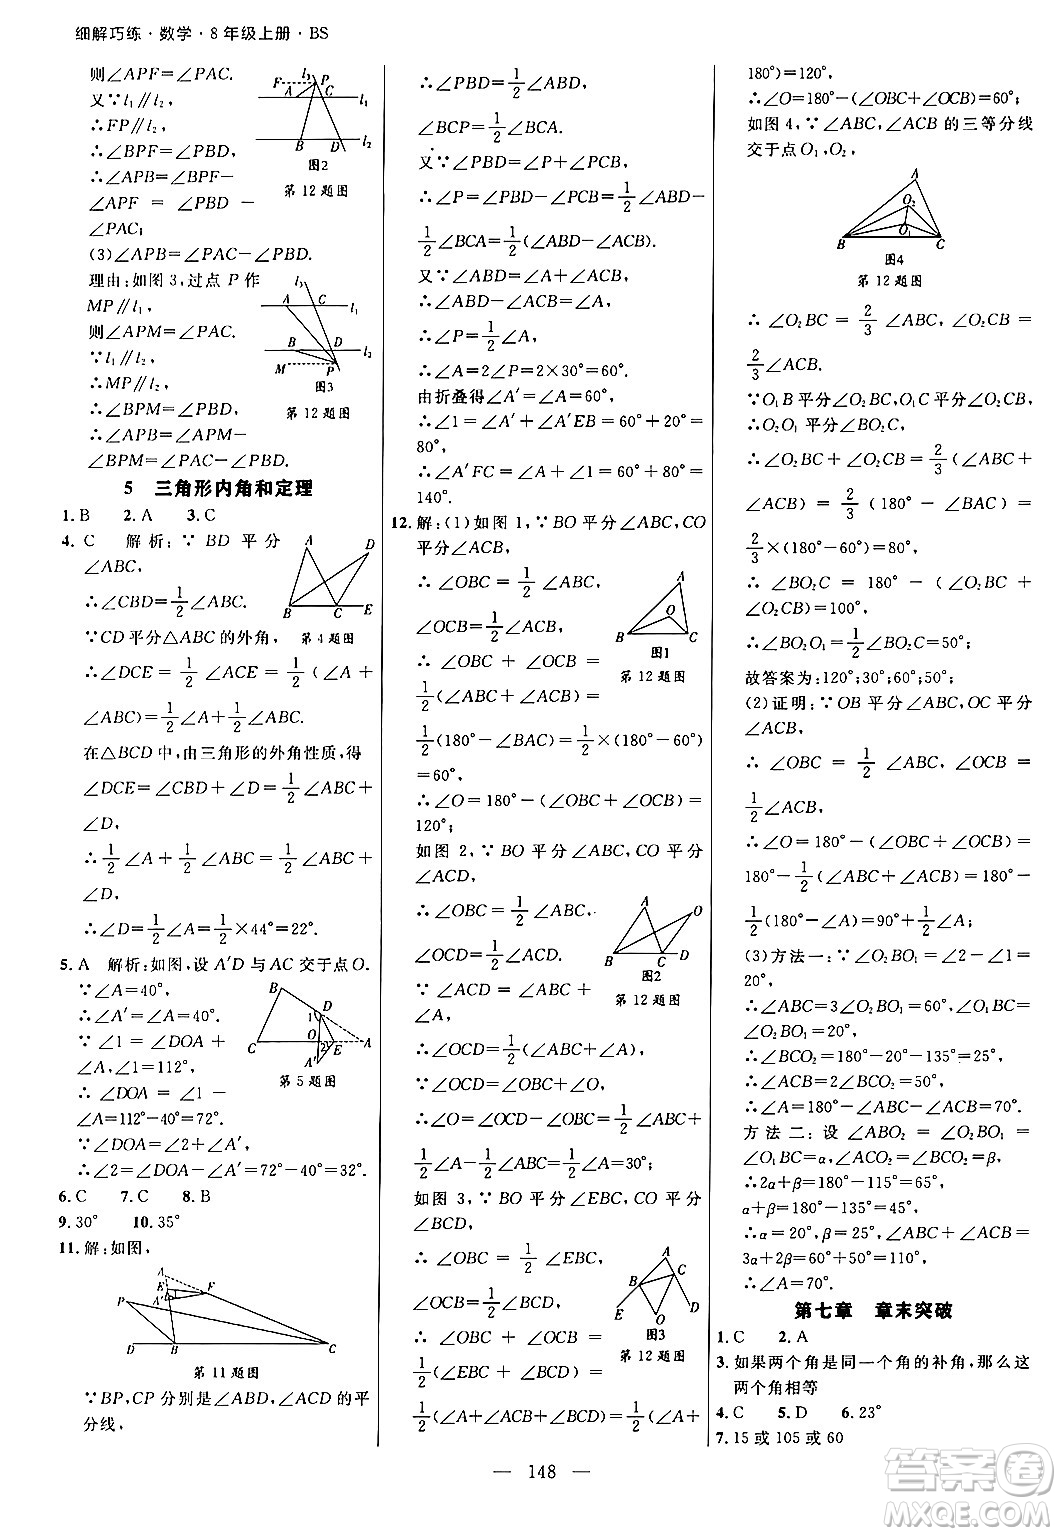 细解巧练·数学·8年级上册·BS
则∠APF=∠PAC.
又∵l₁∥l₂,
∴FP∥l₂,
∴∠BPF=∠PBD,
∴∠APB=∠BPF-
∠APF = ∠PBD -
∠PAC;
F
l₃
P
A
C
l₁
B
D
l₂
图2
第12题图
(3)∠APB=∠PAC-∠PBD.
理由:如图3,过点P作
MP∥l₁,
则∠APM=∠PAC.
∵l₁∥l₂,
∴MP∥l₂,
∴∠BPM=∠PBD,
∴∠APB=∠APM-
∠BPM=∠PAC-∠PBD.
l₃
A
C
l₁
B
D
l₂
M
P
图3
第12题图
5 三角形内角和定理
1.B 2.A 3.C
4.C 解析:∵BD平分
∠ABC,
∴∠CBD=1/2∠ABC.
∵CD平分△ABC的外角,
A
D
B
C
E
第4题图
∴∠DCE=1/2∠ACE=1/2(∠A+
∠ABC)=1/2∠A+1/2∠ABC.
在△BCD中,由三角形的外角性质,得
∠DCE=∠CBD+∠D=1/2∠ABC+
∠D,
∴1/2∠A+1/2∠ABC=1/2∠ABC+
∠D,
∴∠D=1/2∠A=1/2×44°=22°.
5.A 解析:如图,设A′D与AC交于点O.
∵∠A=40°,
∴∠A′=∠A=40°.
∵∠1=∠DOA+
∠A,∠1=112°,
∴∠DOA=∠1-
∠A=112°-40°=72°.
B
D
1
O
C
2
E
A
A′
第5题图
∵∠DOA=∠2+∠A′,
∴∠2=∠DOA-∠A′=72°-40°=32°.
6.C 7.C 8.B
9.30° 10.35°
11.解:如图,
A
E
F
A′
P
D
B
C
第11题图
∵BP,CP分别是∠ABD,∠ACD的平
分线,
∴∠PBD=1/2∠ABD,
∠BCP=1/2∠BCA.
又∵∠PBD=∠P+∠PCB,
∴∠P=∠PBD-∠PCB=1/2∠ABD-
1/2∠BCA=1/2(∠ABD-∠ACB).
又∵∠ABD=∠A+∠ACB,
∴∠ABD-∠ACB=∠A,
∴∠P=1/2∠A,
∴∠A=2∠P=2×30°=60°.
由折叠得∠A′=∠A=60°,
∴∠1=∠A′+∠A′EB=60°+20°=
80°,
∴∠A′FC=∠A+∠1=60°+80°=
140°.
12.解:(1)如图1,∵BO平分∠ABC,CO
平分∠ACB,
∴∠OBC=1/2∠ABC,
∠OCB=1/2∠ACB,
∴∠OBC+∠OCB=
A
O
B
C
图1
第12题图
1/2(∠ABC+∠ACB)=
1/2(180°-∠BAC)=1/2×(180°-60°)
=60°,
∴∠O=180°-(∠OBC+∠OCB)=
120°;
如图2,∵BO平分∠ABC,CO平分
∠ACD,
∴∠OBC=1/2∠ABC,
∠OCD=1/2∠ACD.
∵∠ACD=∠ABC+
∠A,
A
O
B
C
D
图2
第12题图
∴∠OCD=1/2(∠ABC+∠A).
∵∠OCD=∠OBC+∠O,
∴∠O=∠OCD-∠OBC=1/2∠ABC+
1/2∠A-1/2∠ABC=1/2∠A=30°;
如图3,∵BO平分∠EBC,CO平分
∠BCD,
∴∠OBC=1/2∠EBC,
∠OCB=1/2∠BCD,
∴∠OBC+∠OCB=
1/2(∠EBC+∠BCD)=
A
B
C
E
O
D
图3
第12题图
1/2(∠A+∠ACB+∠BCD)=1/2(∠A+
180°)=120°,
∴∠O=180°-(∠OBC+∠OCB)=60°;
如图4,∵∠ABC,∠ACB的三等分线
交于点O₁,O₂,
A
O₂
O₁
B
C
图4
第12题图
∴∠O₂BC=2/3∠ABC,∠O₂CB=
2/3∠ACB.
∵O₁B平分∠O₂BC,O₁C平分∠O₂CB,
∴O₂O₁平分∠BO₂C,
∴∠O₂BC+∠O₂CB=2/3(∠ABC+
∠ACB)=2/3(180°-∠BAC)=
2/3×(180°-60°)=80°,
∴∠BO₂C=180°-(∠O₂BC+
∠O₂CB)=100°,
∴∠BO₂O₁=1/2∠BO₂C=50°;
故答案为:120°;30°;60°;50°;
(2)证明:∵OB平分∠ABC,OC平分
∠ACB,
∴∠OBC=1/2∠ABC,∠OCB=
1/2∠ACB,
∴∠O=180°-(∠OBC+∠OCB)=
180°-1/2(∠ABC+∠ACB)=180°-
1/2(180°-∠A)=90°+1/2∠A;
(3)方法一:∵∠O₂BO₁=∠2-∠1=
20°,
∴∠ABC=3∠O₂BO₁=60°,∠O₁BC=
∠O₂BO₁=20°,
∴∠BCO₂=180°-20°-135°=25°,
∴∠ACB=2∠BCO₂=50°,
∴∠A=180°-∠ABC-∠ACB=70°.
方法二:设∠ABO₂=∠O₂BO₁=
∠O₁BC=α,∠ACO₂=∠BCO₂=β,
∴2α+β=180°-115°=65°,
α+β=180°-135°=45°,
∴α=20°,β=25°,∴∠ABC+∠ACB=
3α+2β=60°+50°=110°,
∴∠A=70°.
第七章 章末突破
1.C 2.A
3.如果两个角是同一个角的补角,那么这
两个角相等
4.C 5.D 6.23°
7.15或105或60
— 148 —
答案圈
MXQE.COM